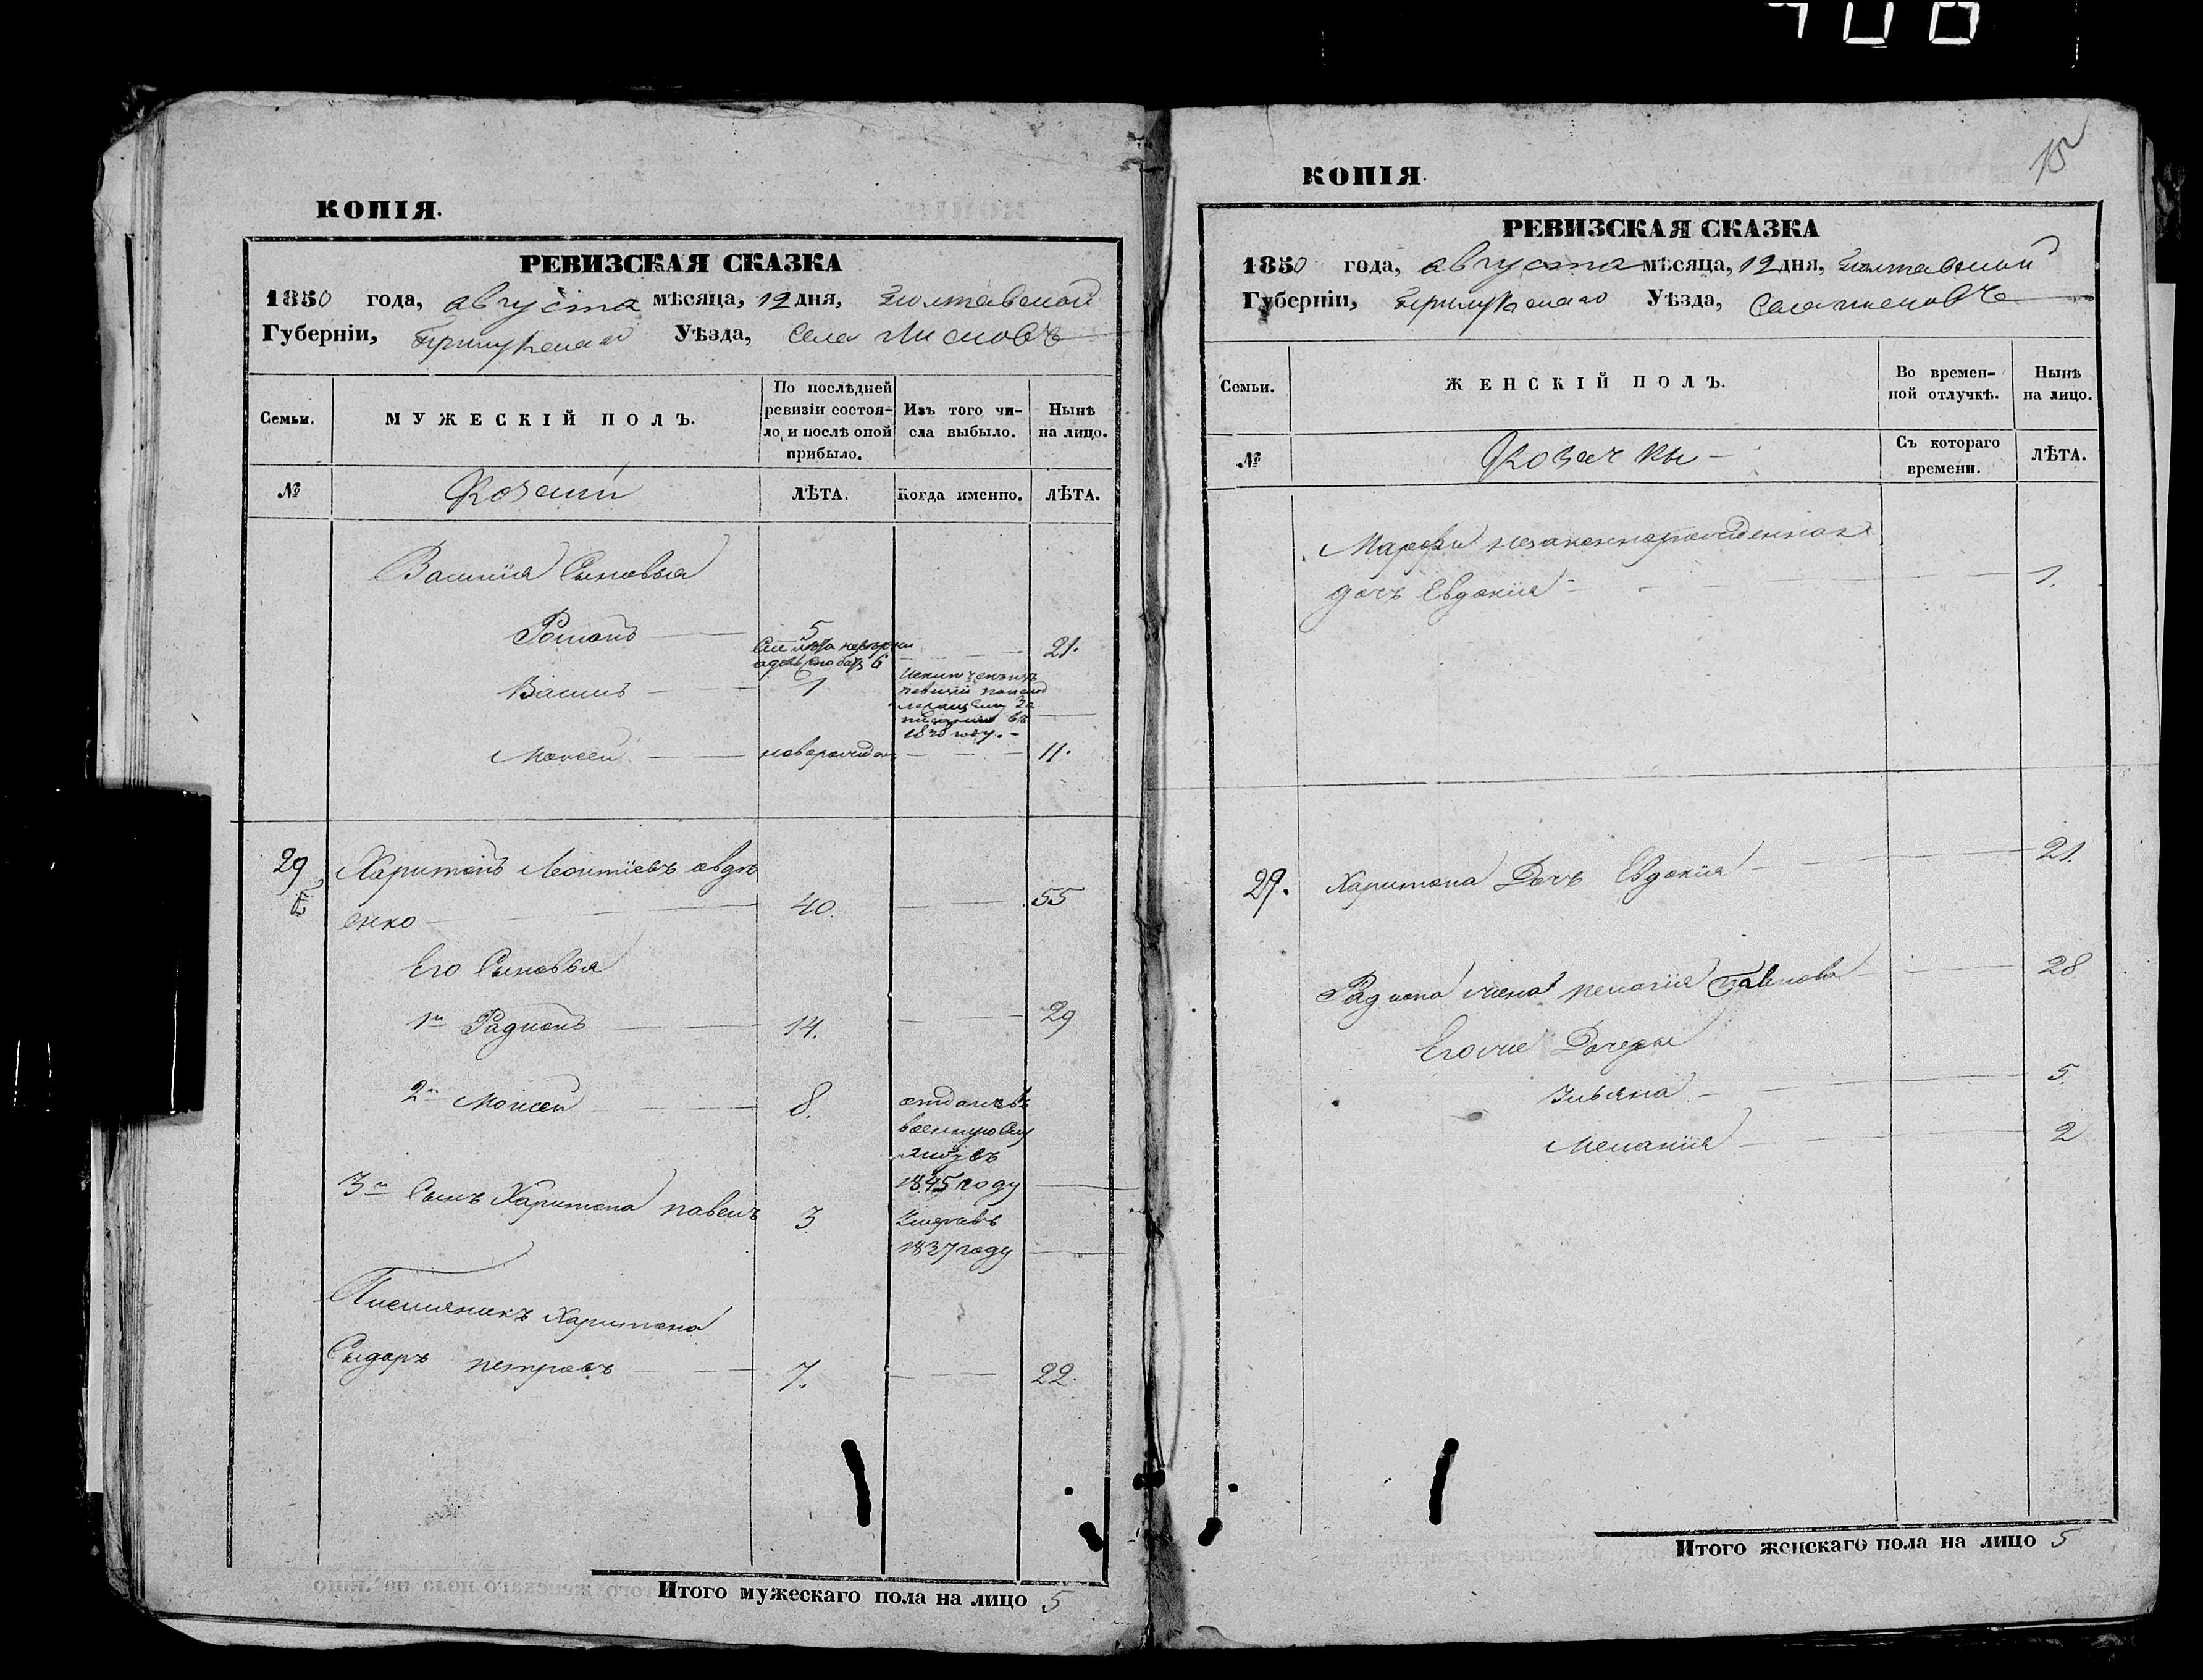 КОПІЯ.
РЕВИЗСКАЯ СКАЗКА
1850 года, августа мѣсяца, 12 дня, Полтавской
Губерніи, Прилукскаго Уѣзда, Села
Семьи.
МУЖЕСКІЙ ПОЛЪ.
По послѣдней
ревизіи состоя-
ло, и послѣ оной
прибыло.
Изъ того чи-
сла выбыло.
Нынѣ
на лицо.
№
Козаки
ЛѢТА.
Когда именно.
ЛѢТА.
Василія Сыновья
Романъ 5 21.
6
Василь 1
Моисей новорожден 11.
29 Харитонъ Леонтіевъ авдѣ
енко 40. 55
Его Сыновья
1й Радионъ 14. 29
2й Моисей 8. отданъ въ
военную Слу
жбу въ
1845 году
3й Сынъ Харитона павелъ 3 Умеръ въ
1837 году
Племяникъ Харитона
Сыдоръ петровъ 7. 22.
Итого мужескаго пола на лицо 5
408
15
КОПІЯ.
РЕВИЗСКАЯ СКАЗКА
1850 года, августа мѣсяца, 12 дня, Полтавской
Губерніи, Прилукскаго Уѣзда, Села
Семьи.
ЖЕНСКІЙ ПОЛЪ.
Во времен-
ной отлучкѣ.
Нынѣ
на лицо.
№
Козачки
Съ котораго
времени.
ЛѢТА.
Марфы незаконнорожденная
дочь Евдокія 1.
29. Харитона Дочь Евдокія 21.
Радиона жена пелагія Павлова 28
Егоже Дочеры
Ульяна 5.
Меланія 2
Итого женскаго пола на лицо 5